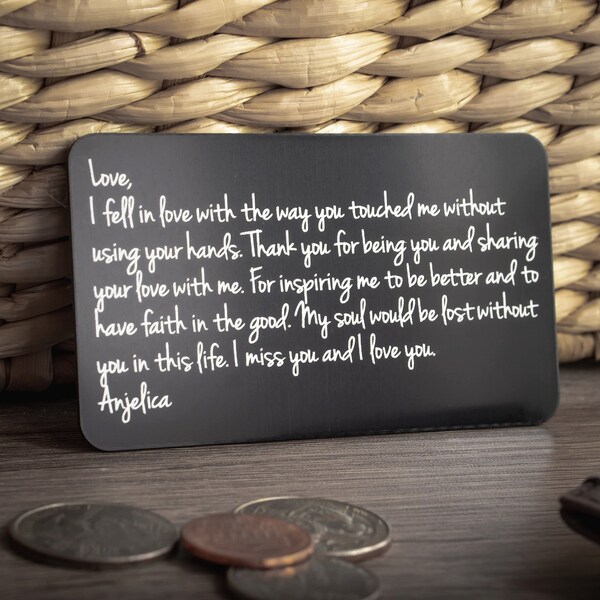 Love,
I fell in love with the way you touched me without
using your hands. Thank you for being you and sharing
your love with me. For inspiring me to be better and to
have faith in the good. My soul would be lost without
you in this life. I miss you and I love you.
Anjelica